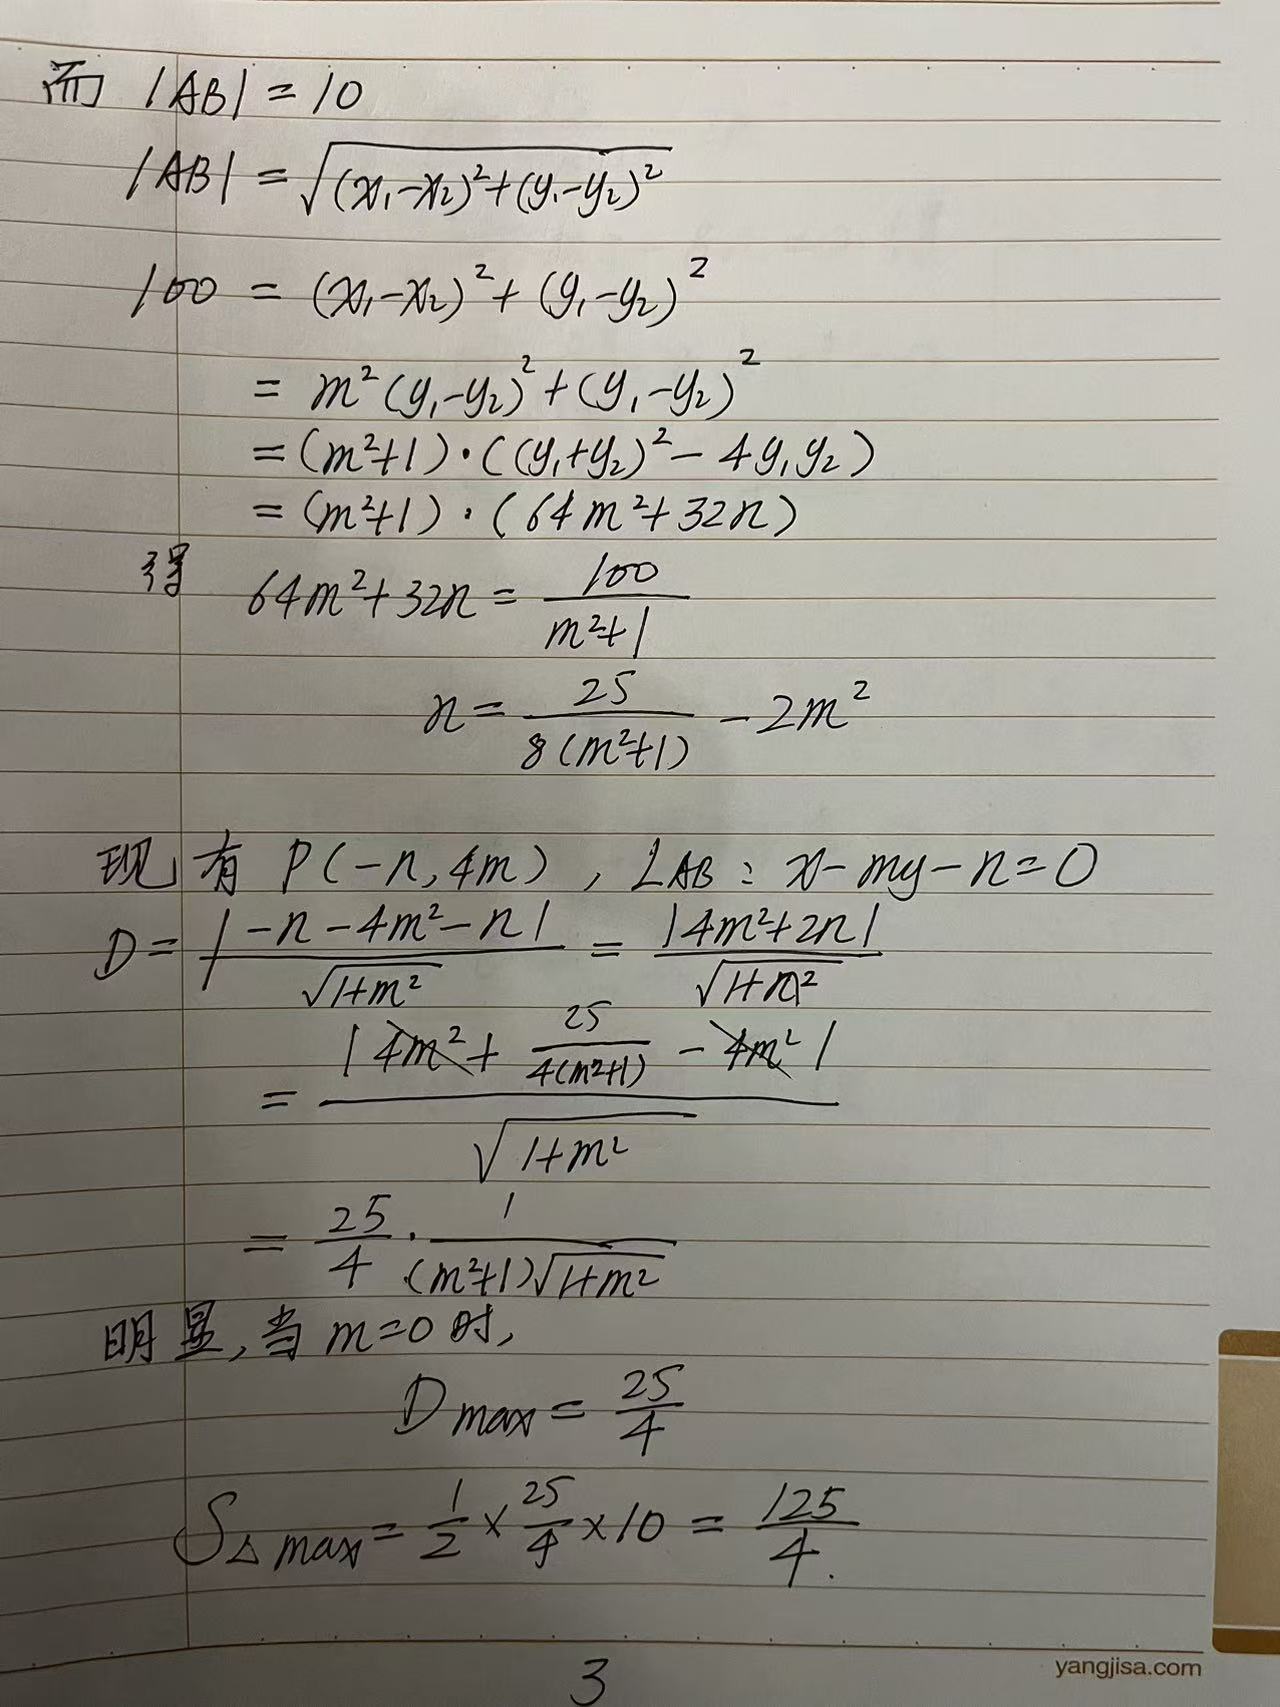 而 |AB| = 10
|AB| = √((x₁-x₂)²+(y₁-y₂)²)
100 = (x₁-x₂)²+(y₁-y₂)²
= m²(y₁-y₂)²+(y₁-y₂)²
= (m²+1)·((y₁+y₂)²-4y₁y₂)
= (m²+1)·(64m²+32n)
得 64m²+32n = 100/(m²+1)
n = 25/(8(m²+1)) - 2m²
现有 P(-n,4m), LAB: x-my-n=0
D = |-n-4m²-n|/√(1+m²) = |4m²+2n|/√(1+m²)
= |4m²+25/(4(m²+1))-4m²|/√(1+m²)
= 25/4·1/((m²+1)√(1+m²))
明显,当m=0时,
Dmax = 25/4
S△max = 1/2×25/4×10 = 125/4.
3
yangjisa.com